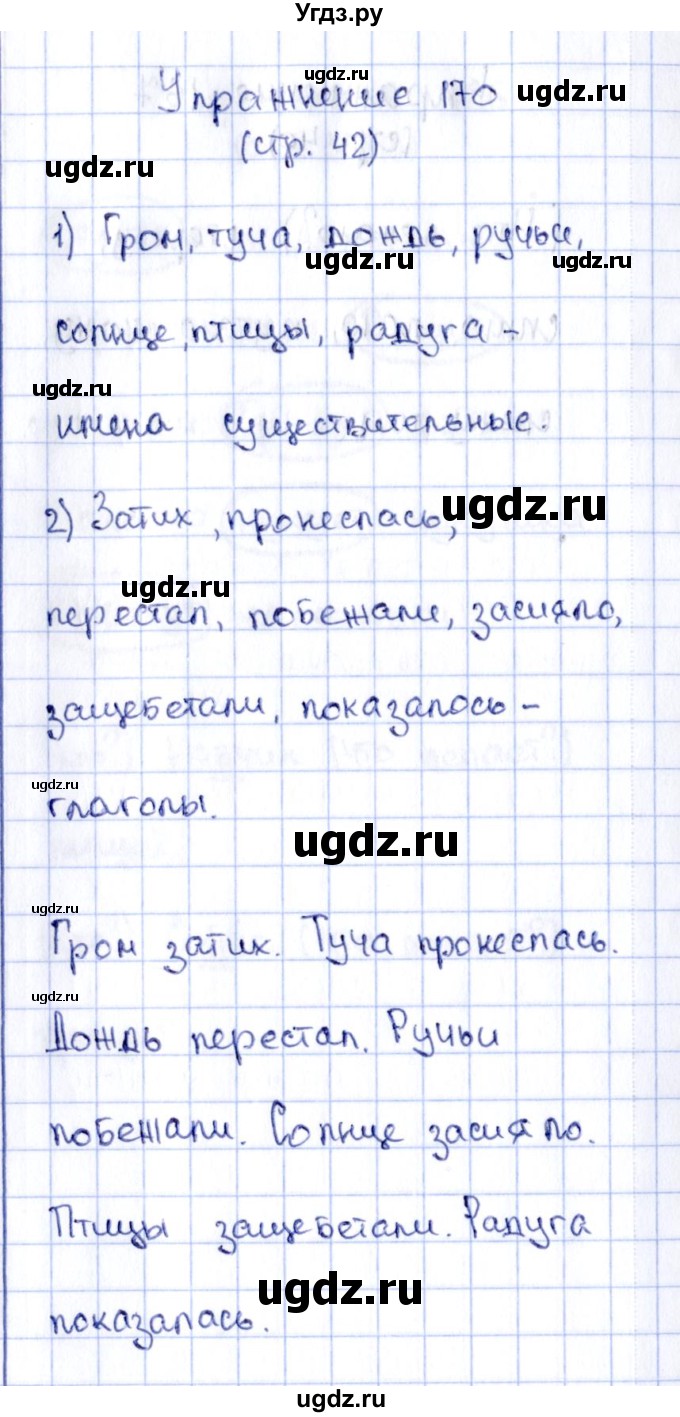 Угдз.ру
ugdz.ru
Упражнение 170 ugdz.ru
ugdz.ru (стр. 42)
1) Гром, туча, дождь, ручьи,
ugdz.ru ugdz.ru
солнце, птицы, радуга -
ugdz.ru
имена существительные.
2) Затих, пронеслась, ugdz.ru
ugdz.ru
перестал, побежали, засияло,
защебетали, показалось -
ugdz.ru
глаголы.
ugdz.ru
ugdz.ru
Гром затих. Туча пронеслась.
ugdz.ru
Дождь перестал. Ручьи
побежали. Солнце засияло.
Птицы защебетали. Радуга
ugdz.ru
показалась.
ugdz.ru